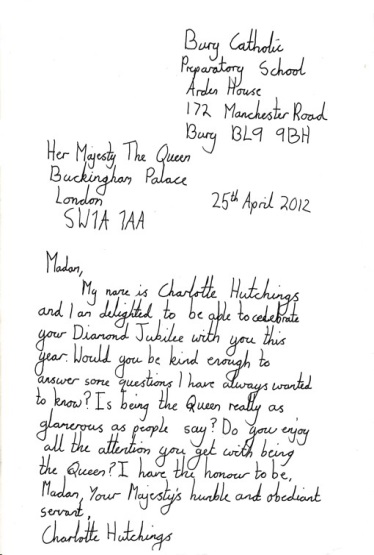 Bury Catholic
Preparatory School
Arden House
172 Manchester Road
Bury BL9 9BH
Her Majesty The Queen
Buckingham Palace
London
25th April 2012
SW1A 1AA
Madam,
My name is Charlotte Hutchings
and I am delighted to be able to celebrate
your Diamond Jubilee with you this
year. Would you be kind enough to
answer some questions I have always wanted
to know? Is being the Queen really as
glamerous as people say? Do you enjoy
all the attention you get with being
the Queen? I have the honour to be,
Madam, Your Majesty's humble and obediant
servant,
Charlotte Hutchings